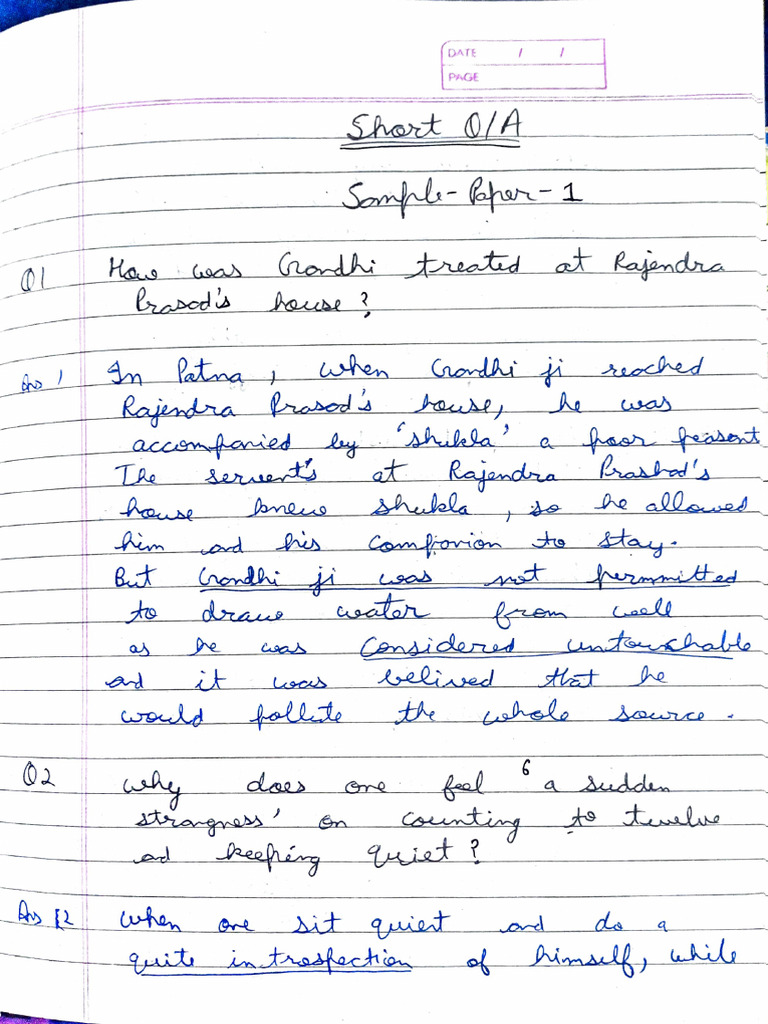 DATE / /
PAGE
Short Q/A
Sample-Paper-1
Q1 How was Gandhi treated at Rajendra
Prasad's house?
Ans 1 In Patna, when Gandhi ji reached
Rajendra Prasad's house, he was
accompanied by 'shukla' a poor peasant
The servent's at Rajendra Prashad's
house knew shukla, so he allowed
him and his companion to stay.
But Gandhi ji was not permmitted
to draw water from well
as he was considered untouchable
and it was belived that he
would pollute the whole source.
Q2 why does one feel 'a sudden
strangness' on counting to twelve
ad keeping quiet?
Ans 2 when one sit quiert and do a
quite introspection of himself, while